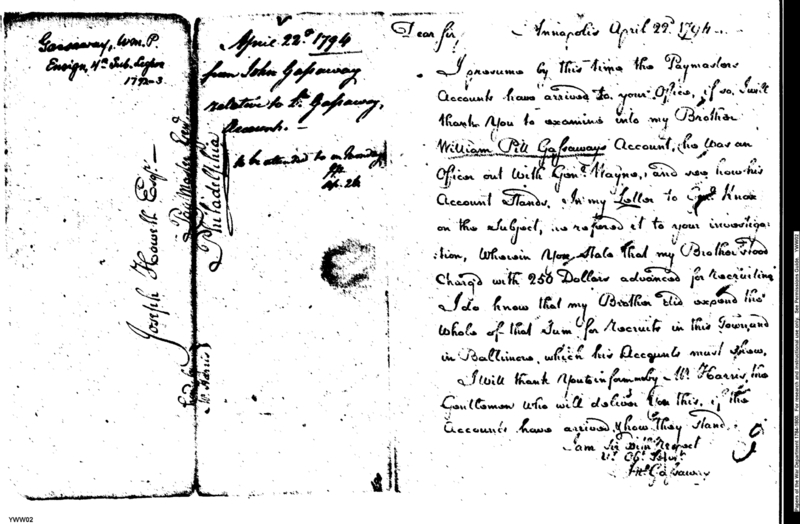 Gassaway, Wm. P.
Ensign, 4th Sub. Legion
1792-3
April 22d. 1794
from John Gassaway
relative to Gassaway,
Account. —
to be attended to on
Joseph Howell Esqr.
Pay Master Genl.
Philadelphia
Mr. Harris
Annapolis April 22d. 1794.
Dear Sir,
I presume by this time the Paymasters
Accounts have arrived to your Office, if so, I will
thank You to examine into my Brother
William Pitt Gassaways Account, he was an
Officer out with Genl. Wayne, and see how his
Account Stands. In my Letter to Genl. Knox
on the Subject, he refered it to your investiga-
:tion, Wherein You State that my Brother stood
Charg'd with 250 Dollars advanced for Recruiting
I do know that my Brother did expend the
Whole of that Sum for Recruits in this Town and
in Baltimore, which his Accounts must show.
I Will thank You to inform me by Mr. Harris, the
Gentleman Who will deliver You this, if the
Accounts have arrived & how they Stand.
I am Sir With Respect
Yr. Ob. Servt.
Jno. Gassaway
YWW02